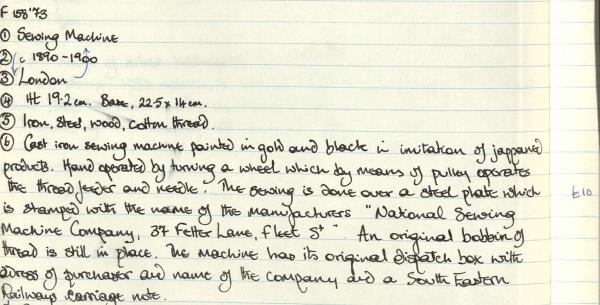 F 158'73
① Sewing Machine
② c 1890-1900
③ London
④ Ht 19.2cm. Base, 22.5 x 14cm.
⑤ Iron, steel, wood, cotton thread.
⑥ Cast iron sewing machine painted in gold and black in imitation of japanned
products. Hand operated by turning a wheel which by means of pulley operates
the thread feeder and needle. The sewing is done over a steel plate which
is stamped with the name of the manufacturers "National Sewing
Machine Company, 37 Fetter Lane, Fleet St" An original bobbin of
thread is still in place. The machine has its original dispatch box with
address of purchaser and name of the company and a South Eastern
Railways carriage note.
£10